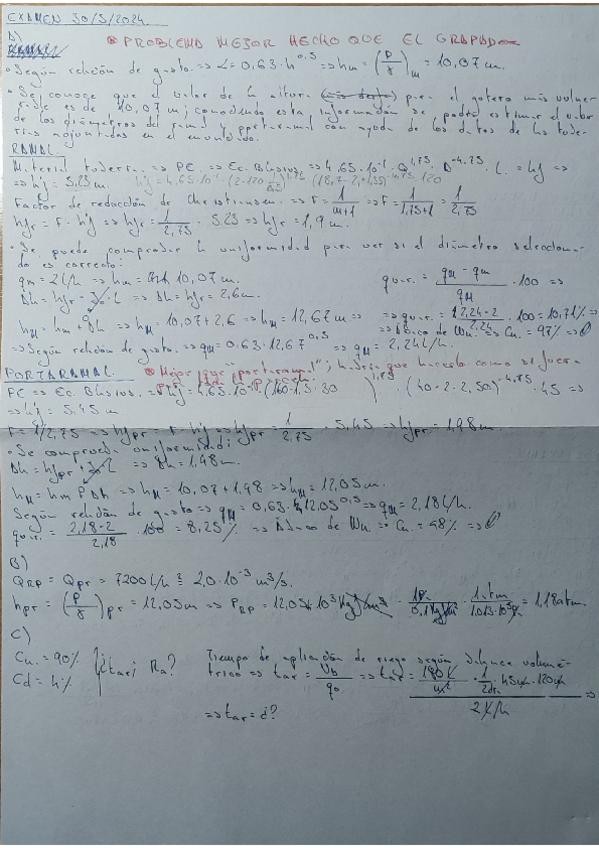 EXAMEN 30/5/2024.
A)
* PROBLEMA MEJOR HECHO QUE EL GRAPADO
• Según relación de gasto. => L = 0,63·h^0,5 => hm = (P/γ)m = 10,07 m.
• Se conoce que el valor de la altura para el gotero más vulne-
rable es de 10,07 m; conociendo esta información se podrá estimar el valor
de los diámetros del ramal y portaramal con ayuda de los datos de las tube-
rías adjuntados en el enunciado.
RAMAL.
Material tubería. => PE => Ec. Blasius. => 4,65·10^-1 · Q^1,75 · D^-4,75 · L = hf =>
=> h'f = 5,23 m.
Factor de reducción de Christiansen. => F = 1/(m+1) => F = 1/(1,75+1) = 1/2,75
hfr = F · h'f => hfr = 1/2,75 · 5,23 => hfr = 1,9 m.
• Se puede comprobar la uniformidad para ver si el diámetro selecciona-
do es correcto:
qm = 2 L/h => hm = 10,07 m. qvar. = (qM - qm)/qM · 100 =>
Δh = hfr => Δh = hfr = 2,6 m.
hM = hm + Δh => hM = 10,07 + 2,6 => hM = 12,67 m => => qvar. = (2,24-2)/2,24 · 100 = 10,71% =>
=> Ábaco de Wu. => Cu. = 97% =>
=> Según relación de gasto. => qM = 0,63·12,67^0,5 => qM = 2,24 L/h.
PORTARAMAL.
PE => Ec. Blasius. => h'f = 4,65·10^-1 · 45 =>
=> h'f = 5,45 m
F = 1/2,75 => hfpr = F · h'f => hfpr = 1/2,75 · 5,45 => hfpr = 1,98 m.
• Se comprueba uniformidad:
Δh = hfpr => Δh = 1,98 m.
hM = hm + Δh => hM = 10,07 + 1,98 => hM = 12,05 m.
Según relación de gasto => qM = 0,63·12,05^0,5 => qM = 2,18 L/h.
qvar. = (2,18-2)/2,18 · 100 = 8,25% => Ábaco de Wu => Cu. = 98% =>
B)
QRP = Qpr = 7200 L/h ≅ 2,0·10^-3 m³/s.
hpr = (P/γ)pr = 12,05 m => PRP = 12,05·10^3 Kg/m² · 1 atm = 1,18 atm.
C)
Cu. = 90%
Cd = 4%
¿tar; Ra? Tiempo de aplicación de riego según balance volumé-
trico => tar = Vb/q0 => tar =
2 L/h =>
=> tar = ¿?